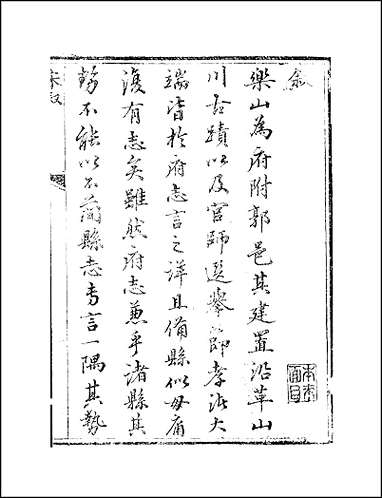 敘
樂山為府附郭邑其建置沿革山
川古蹟以及官師選舉節孝諸大
端皆於府志言之詳且備縣似毋庸
復有志矣雖然府志兼乎諸縣其
勢不能以不簡縣志專言一隅其勢